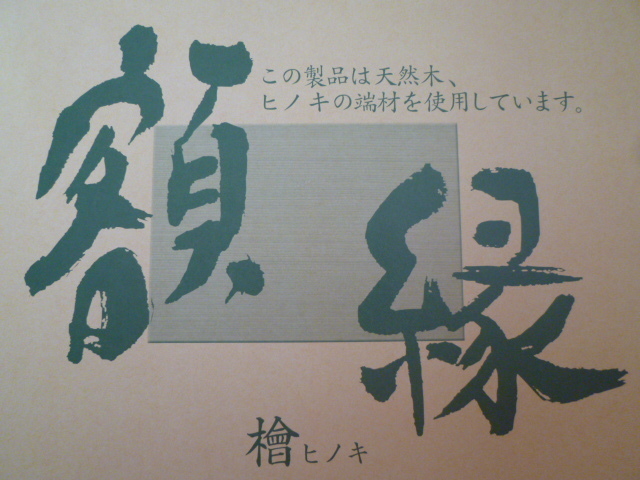 額縁
この製品は天然木、
ヒノキの端材を使用しています。
檜ヒノキ